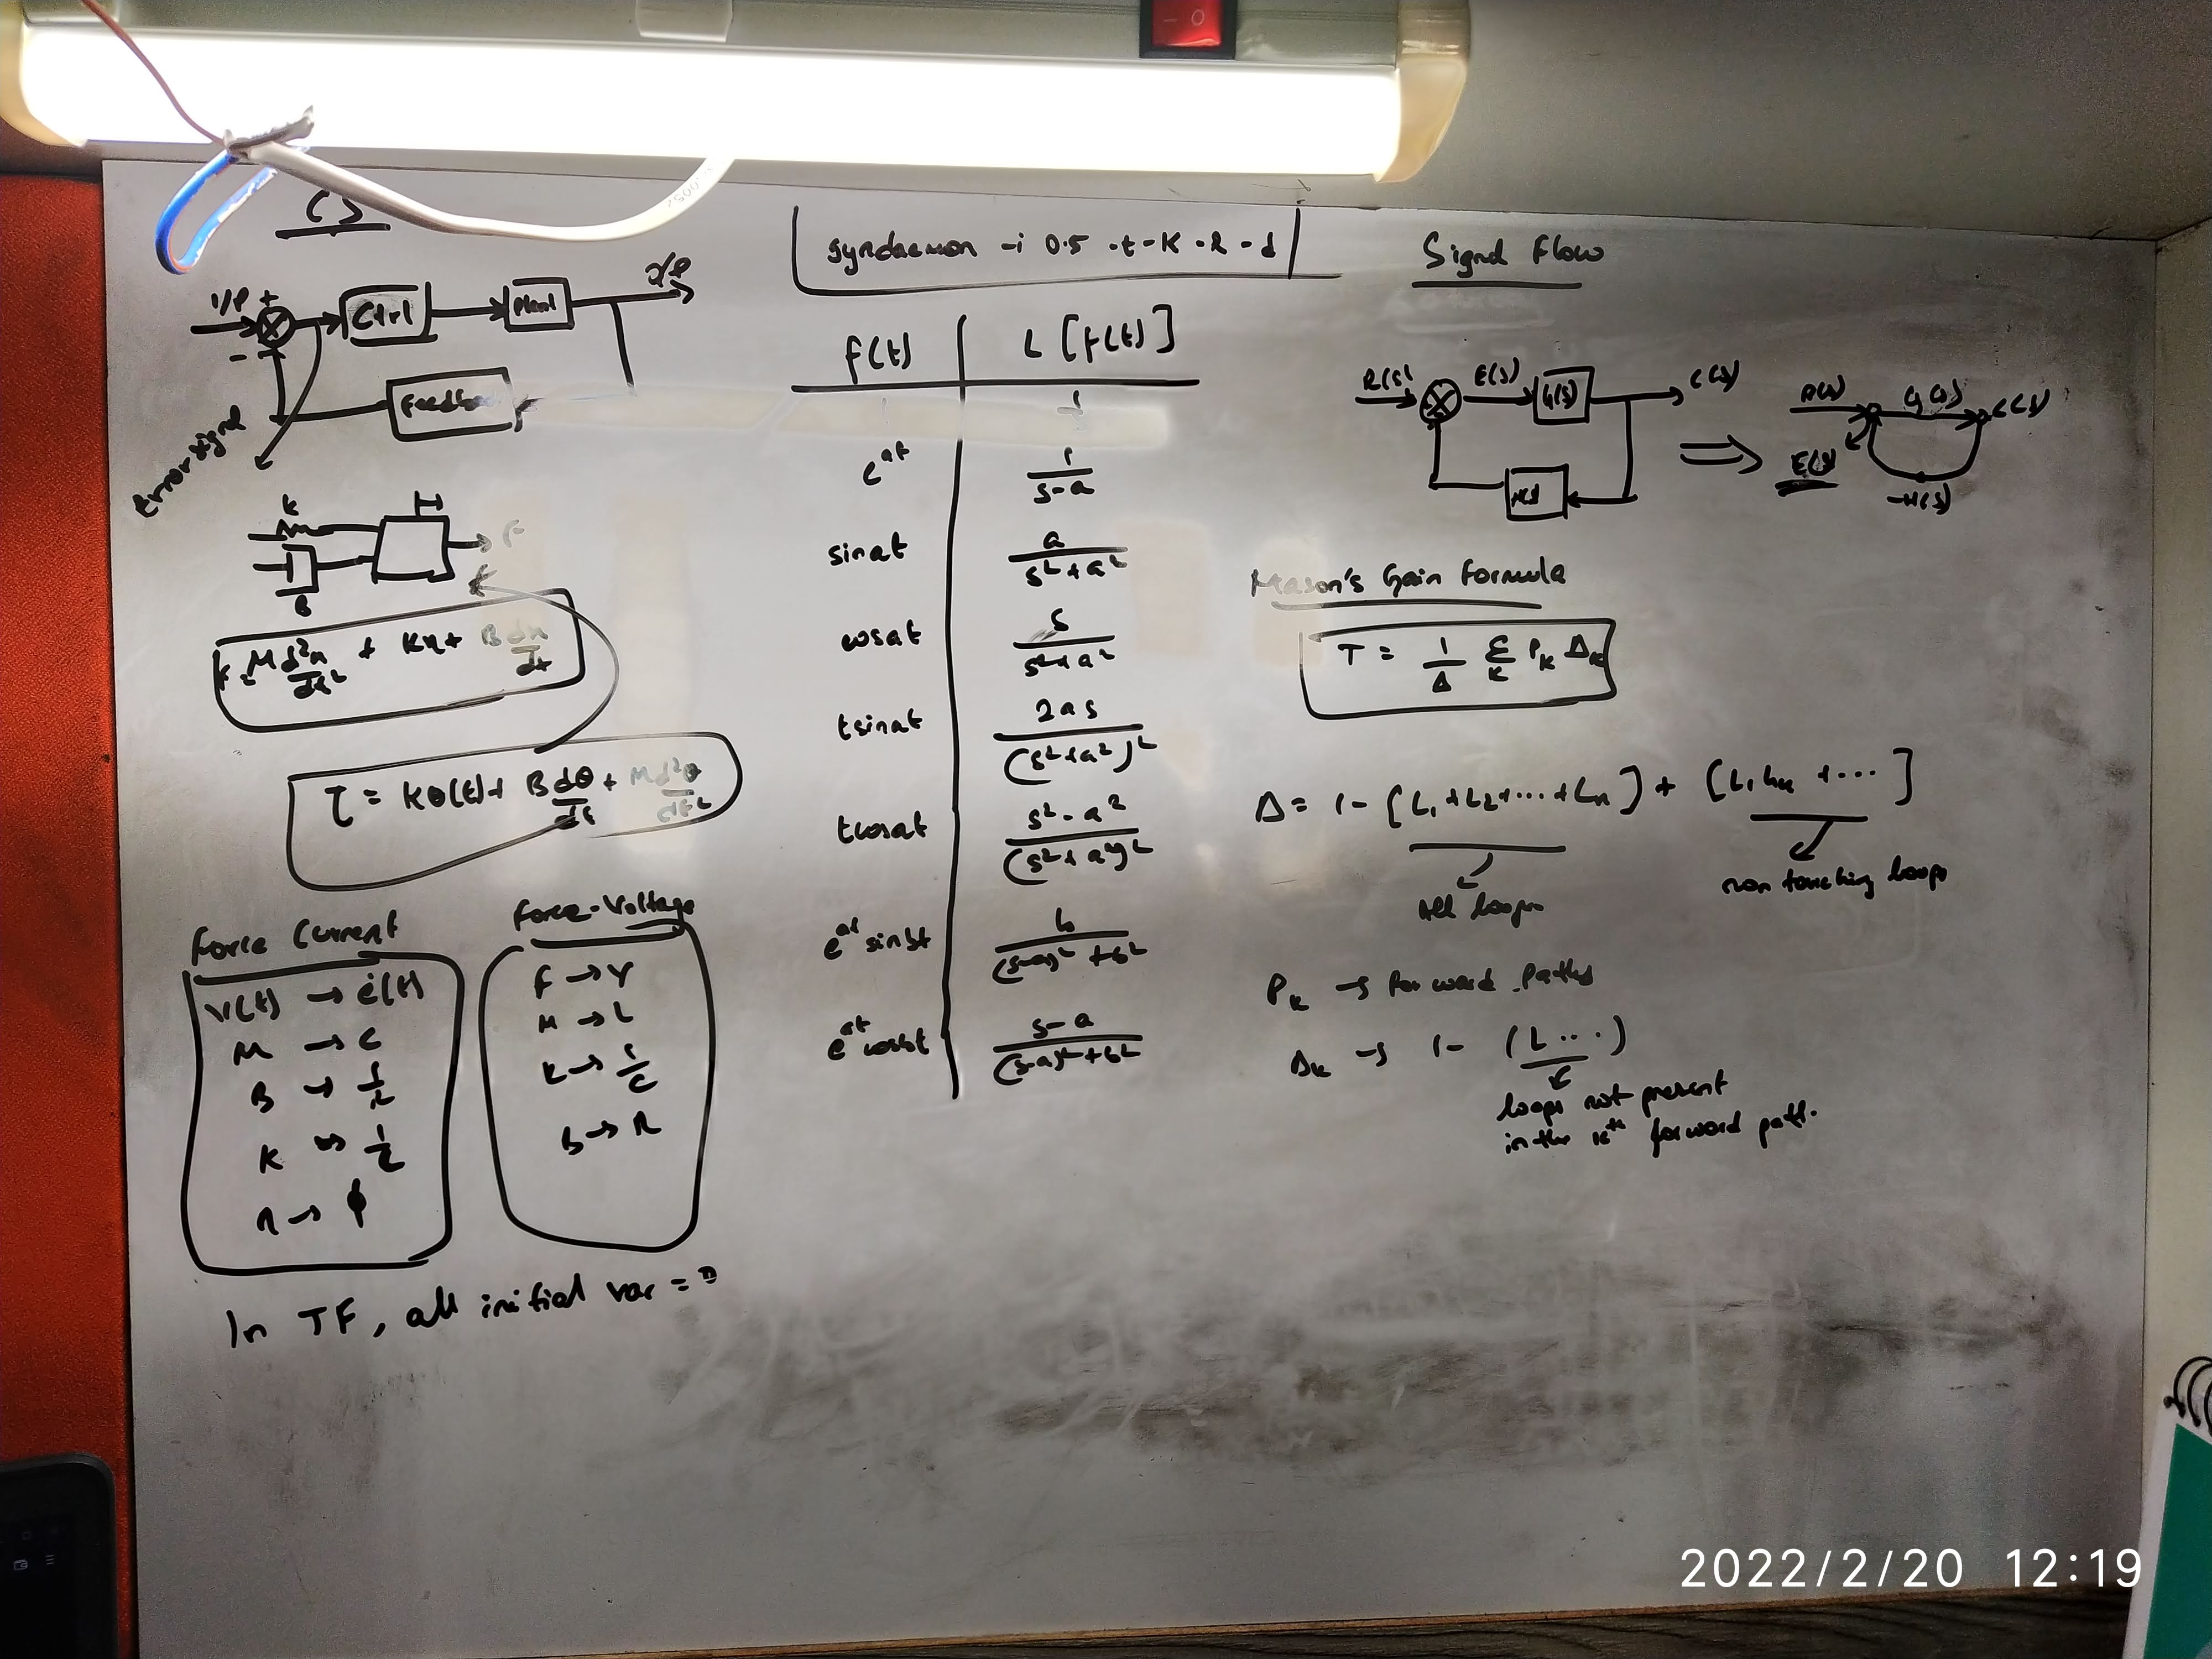 CS
I/P
+
-
Ctrl
Plant
O/P
Feedback
Error signal
K
M
F
B
F = M d²x/dt² + Kx + B dx/dt
τ = Kθ(t) + B dθ/dt + M d²θ/dt²
Force Current
v(t) → ė(t)
M → C
B → 1/R
K → 1/L
x → ϕ
Force-Voltage
F → V
M → L
K → 1/C
B → R
In TF, all initial var = 0
syndaemon -i 0.5 -t -K -R -d
f(t) L[f(t)]
1 1/s
e^at 1/(s-a)
sinat a/(s²+a²)
cosat s/(s²+a²)
tsinat 2as/(s²+a²)²
tcosat s²-a²/(s²+a²)²
e^at sinbt b/((s-a)²+b²)
e^at cosbt s-a/((s-a)²+b²)
Signal Flow
R(s)
E(s)
G(s)
C(s)
H(s)
⇒
R(s)
G(s)
C(s)
E(s)
-H(s)
Mason's Gain Formula
T = 1/Δ Σ_K P_K Δ_K
Δ = 1 - [L₁+L₂+...+Lₙ] + [L₁Lₙ + ...]
All loops
non touching loops
P_K → Forward Paths
Δ_K → 1 - (L...)
loops not present
in the Kth forward path.
2022/2/20 12:19